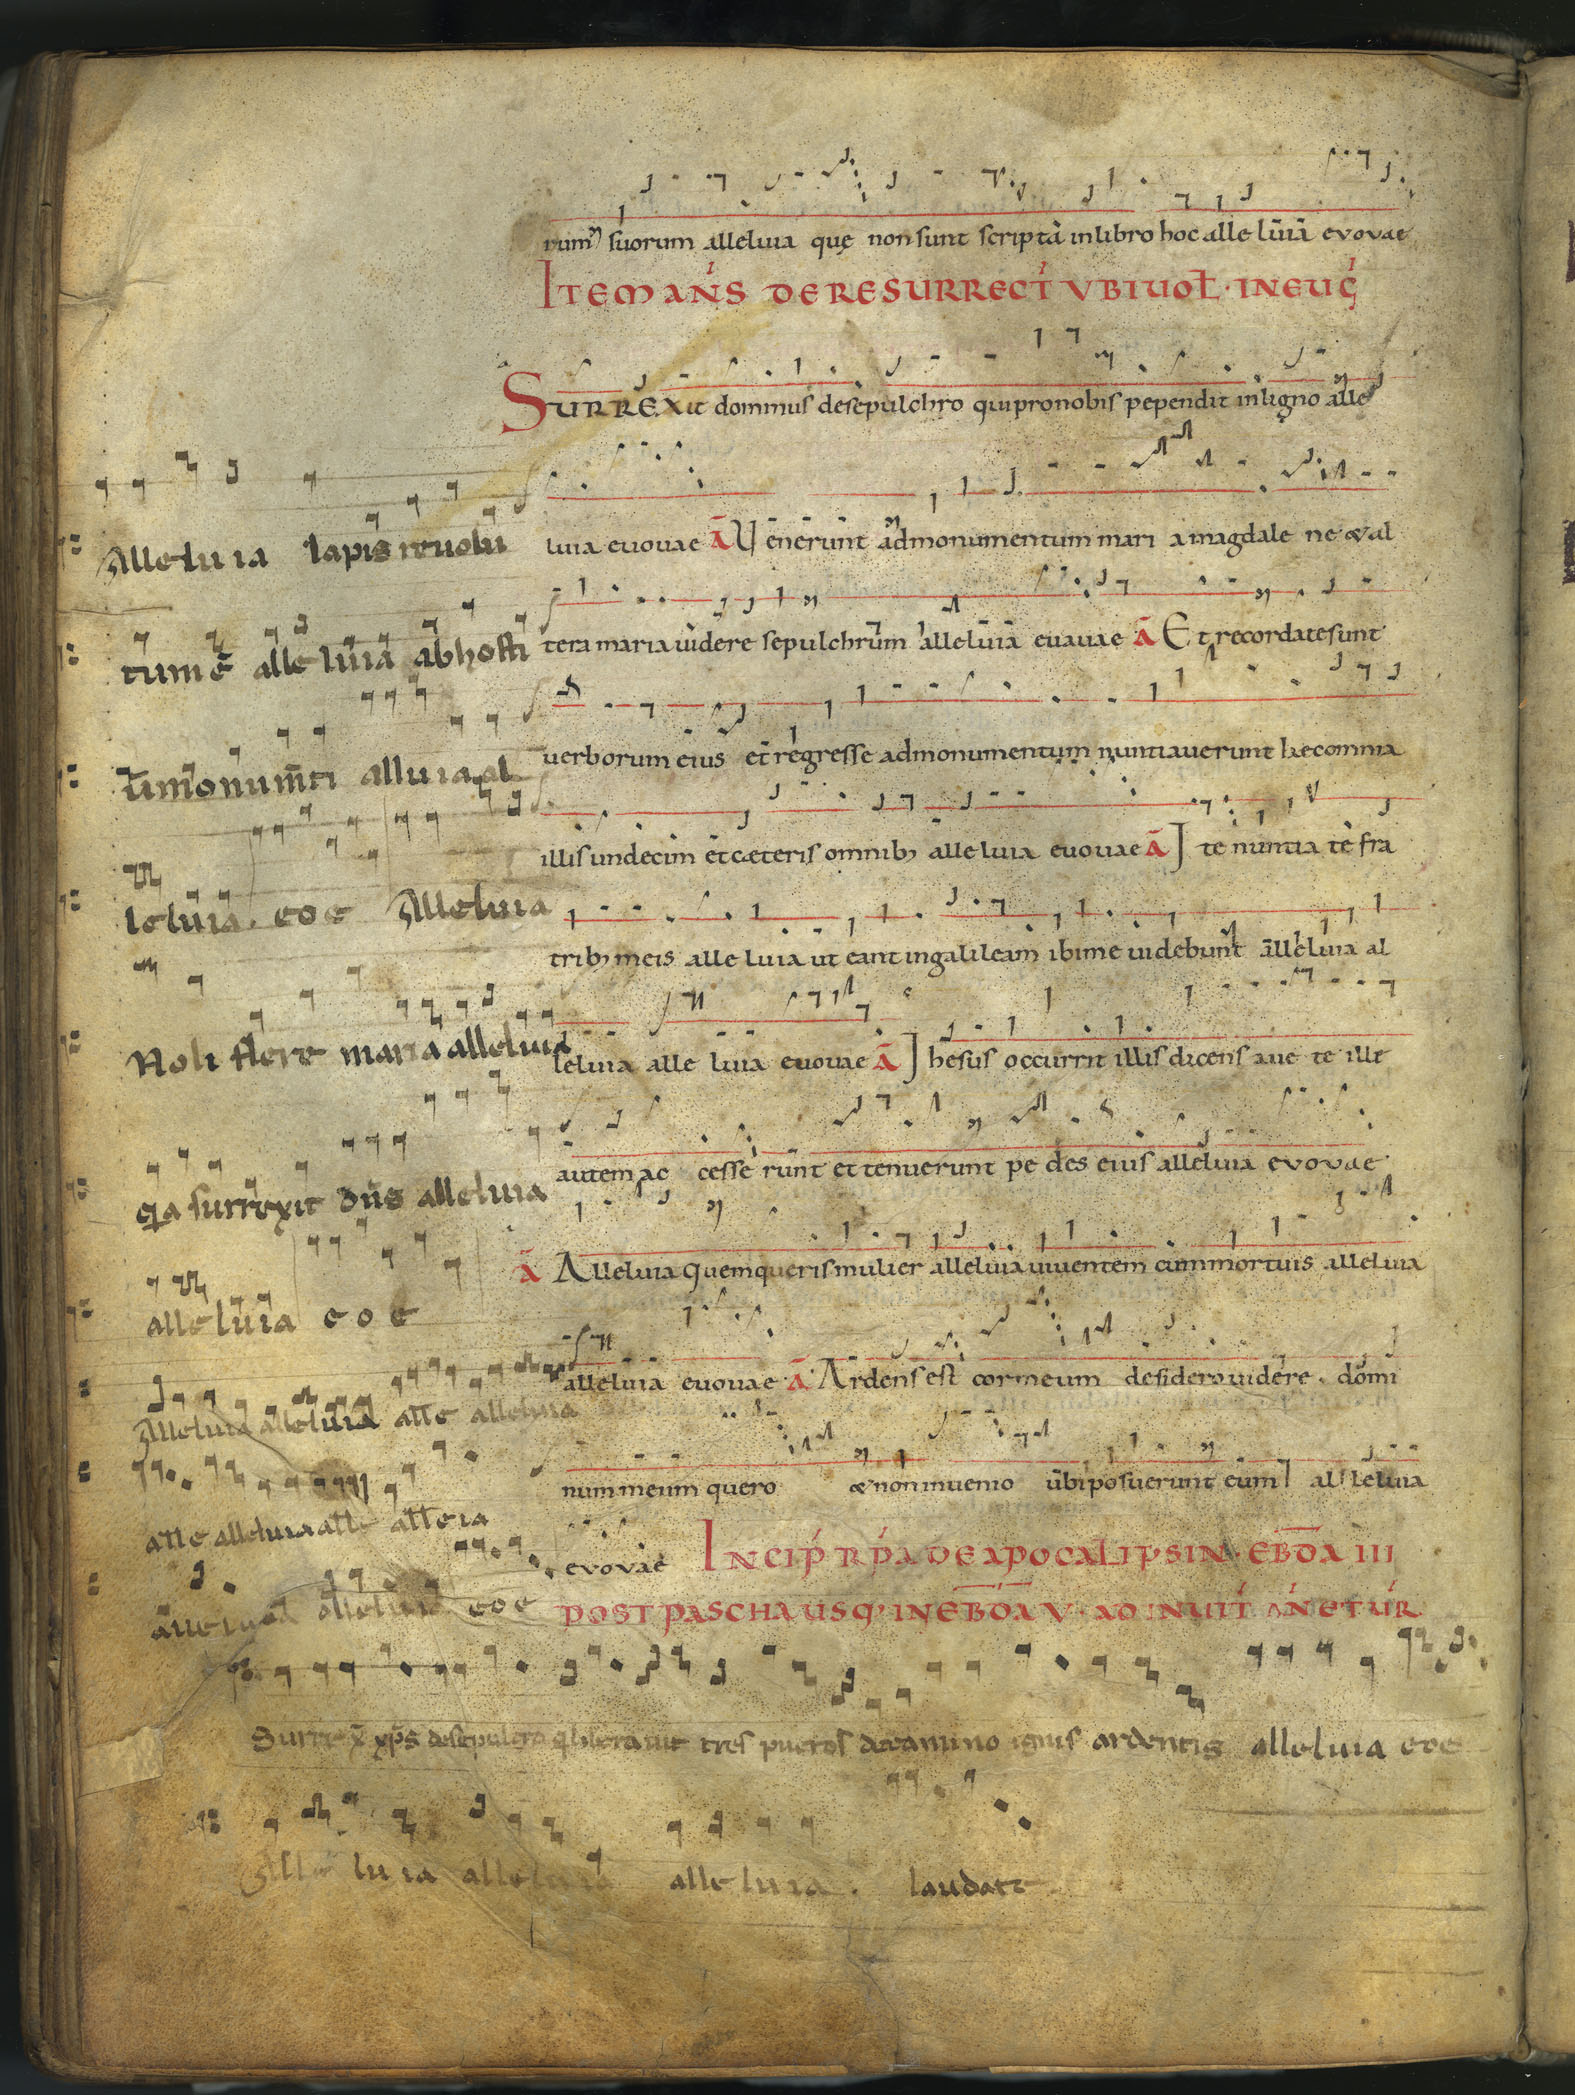 rum suorum alleluia quę non sunt scripta in libro hoc alleluia evovae
ITEM AÑS DE RESURRECT UBI VOŁ · IN EUG
SURREXit dominus de sepulchro qui pro nobis pependit in ligno alle
luia euouae Ā Venerunt ad monumentum mari a magdale ne & al
tera maria uidere sepulchrum alleluia euauae Ā Et recordate sunt
uerborum eius et regresse ad monumentum nuntiauerunt hec omnia
illis undecim et cæteris omnib; alleluia euouae Ā Ite nuntiate fra
trib; meis alleluia ut eant in galileam ibi me uidebunt alleluia al
leluia alleluia euouae Ā Ihesus occurrit illis dicens auete ille
autem ac cesserunt et tenuerunt pedes eius alleluia evovae
Ā Alleluia quem queris mulier alleluia uiuentem cum mortuis alleluia
alleluia euouae Ā Ardens est cor meum desidero uidere · domi
num meum quero & non inuenio ubi posuerunt eum alleluia
evovae INCIP R̄ PA DE APOCALIPSIN · EBD̄A III
POST PASCHA USQ; IN EBD̄A V · AD NUIT
Alleluia lapis reuolu
tum ē alleluia ab hosti
um monum̄ti alluia al
leluia · eoe Alleluia
Noli flere maria alleluia
q̄a surrexit dn̄s alleluia
alleluia eoe
Alleluia alleluia alle alleluia
alle alleluia alle alleia
alleluia eoe
Surrex̄ xp̄s de sepulcro q liberauit tres pueros de camino ignis ardentis alleluia eoe
Alleluia alleluia alleluia · laudate